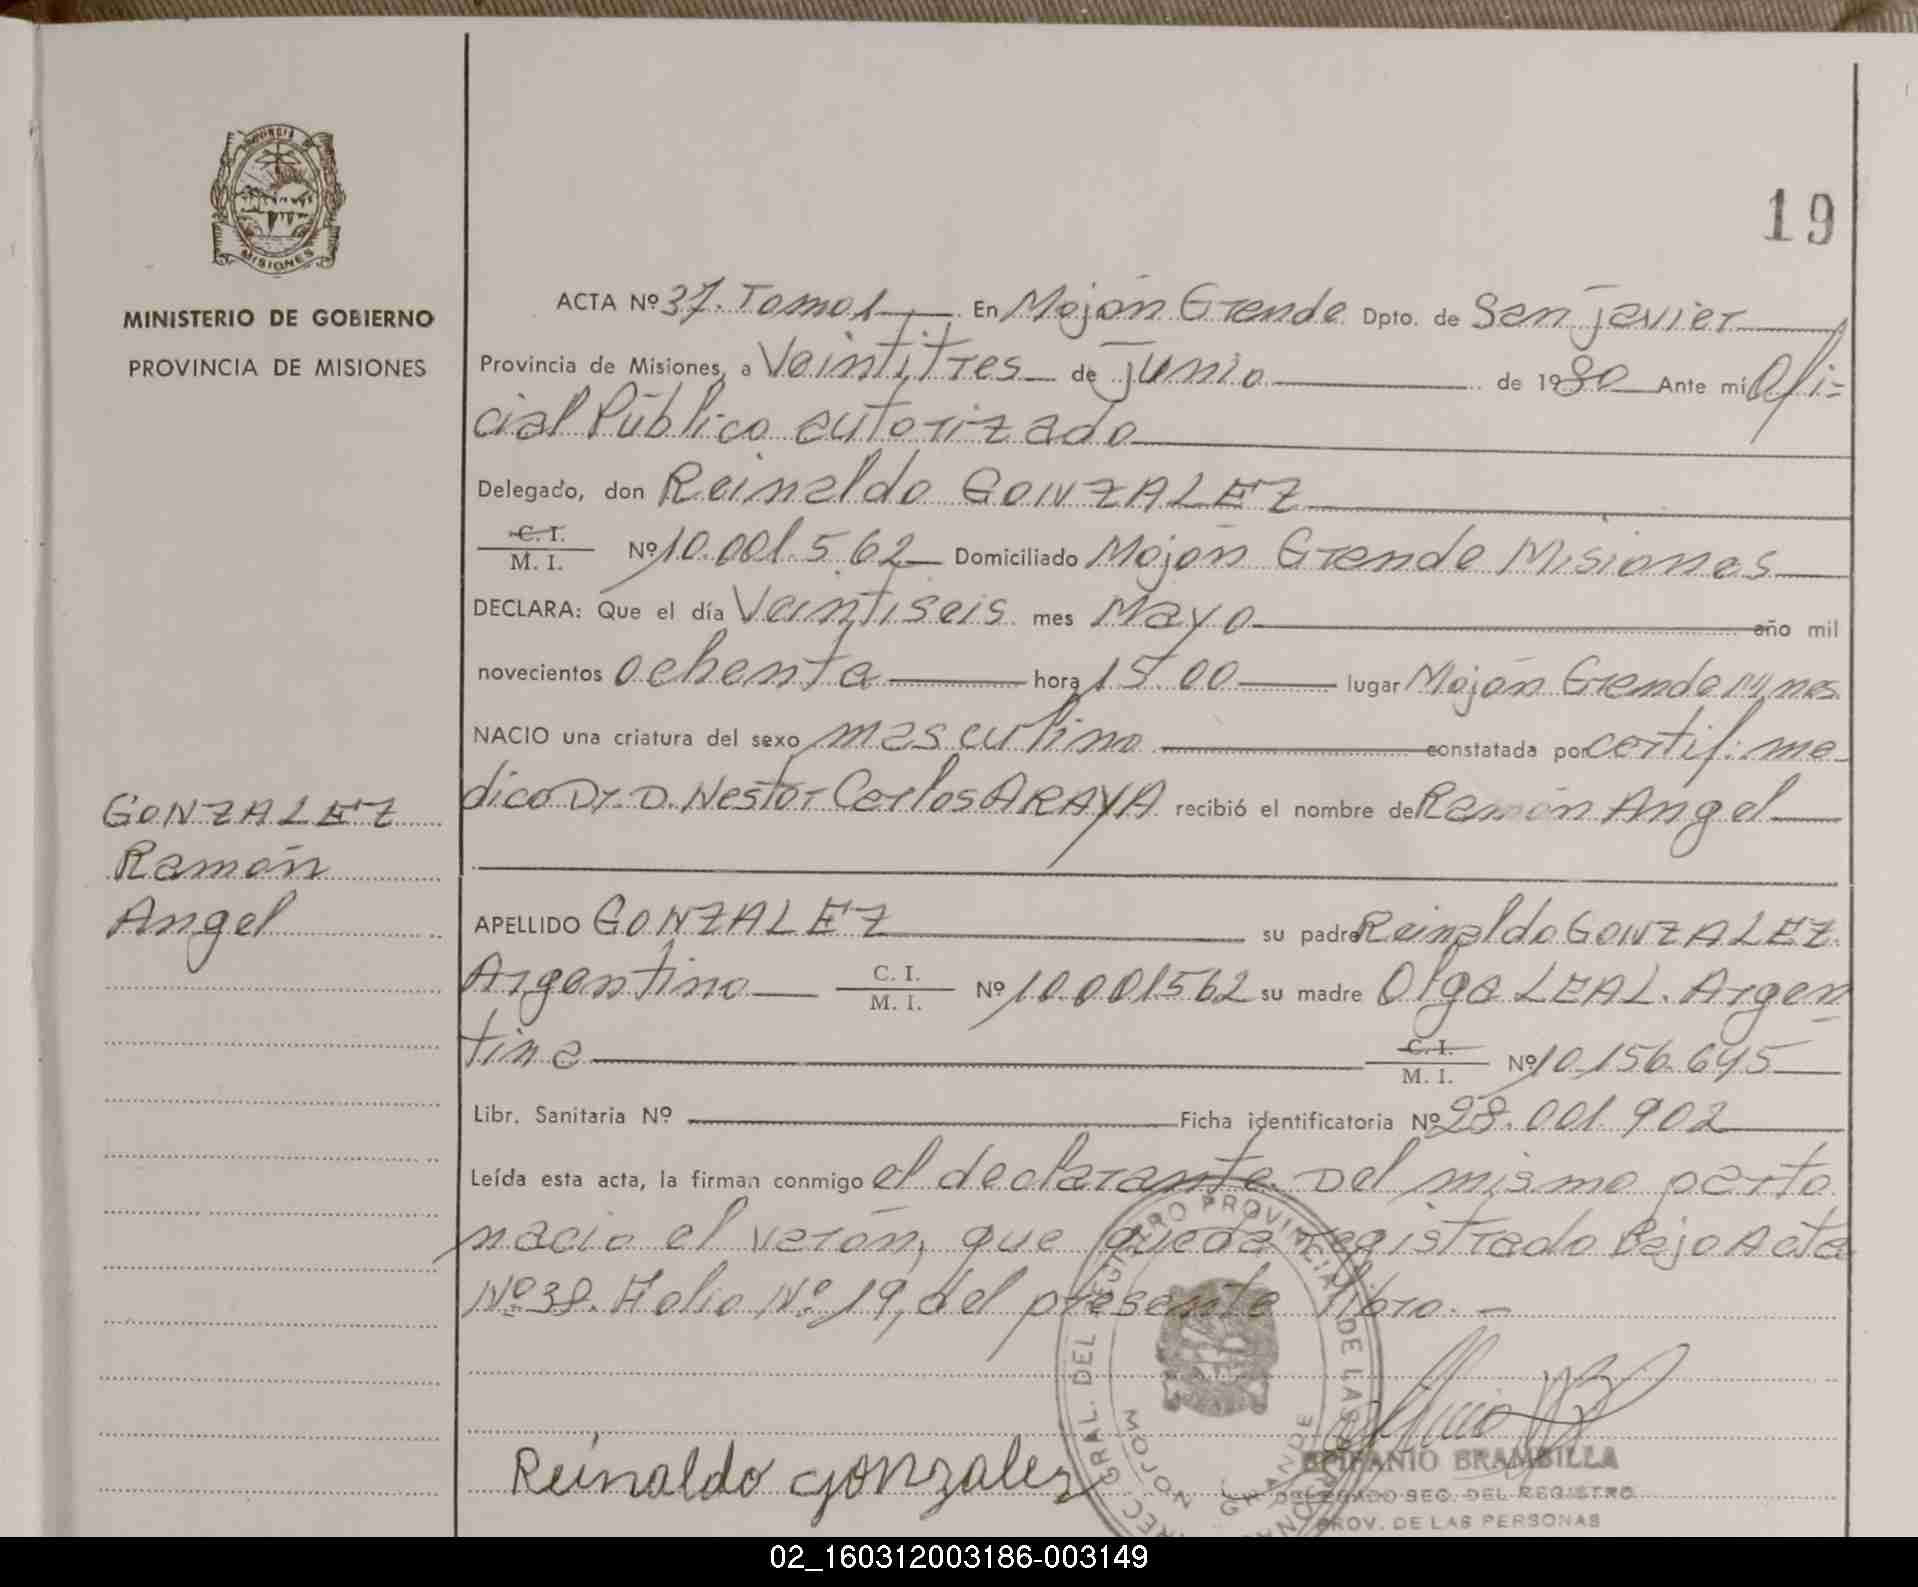 19
PROVINCIA DE
MISIONES
MINISTERIO DE GOBIERNO
PROVINCIA DE MISIONES
ACTA Nº 37. Tomo 1 En Mojón Grande Dpto. de San Javier
Provincia de Misiones, a Veintitres de Junio de 1980 Ante mí Ofi=
cial Público autorizado
Delegado, don Reinaldo GONZALEZ
C. I.
M. I. Nº 10.001.562 Domiciliado Mojón Grande Misiones
DECLARA: Que el día Veintiseis mes Mayo año mil
novecientos ochenta hora 15.00 lugar Mojón Grande Mnes.
NACIO una criatura del sexo masculino constatada por certif. me-
dico Dr. D. Nestor Carlos ARAYA recibió el nombre de Ramón Angel
GONZALEZ
Ramón
Angel
APELLIDO GONZALEZ su padre Reinaldo GONZALEZ.
Argentino C. I.
M. I. Nº 10.001562 su madre Olga LEAL. Argen
tina C. I.
M. I. Nº 10.156.695
Libr. Sanitaria Nº Ficha identificatoria Nº 28.001.902
Leída esta acta, la firman conmigo el declarante. Del mismo parto
nacio el varón, que queda registrado Bajo Acta
Nº 38. Folio Nº 19, del presente libro. -
Reinaldo gonzalez
DIREC. GRAL. DEL REGISTRO PROVINCIAL DE LAS PERSONAS
MOJON GRANDE
EPIFANIO BRAMBILLA
DELEGADO SEC. DEL REGISTRO
PROV. DE LAS PERSONAS
02_160312003186-003149